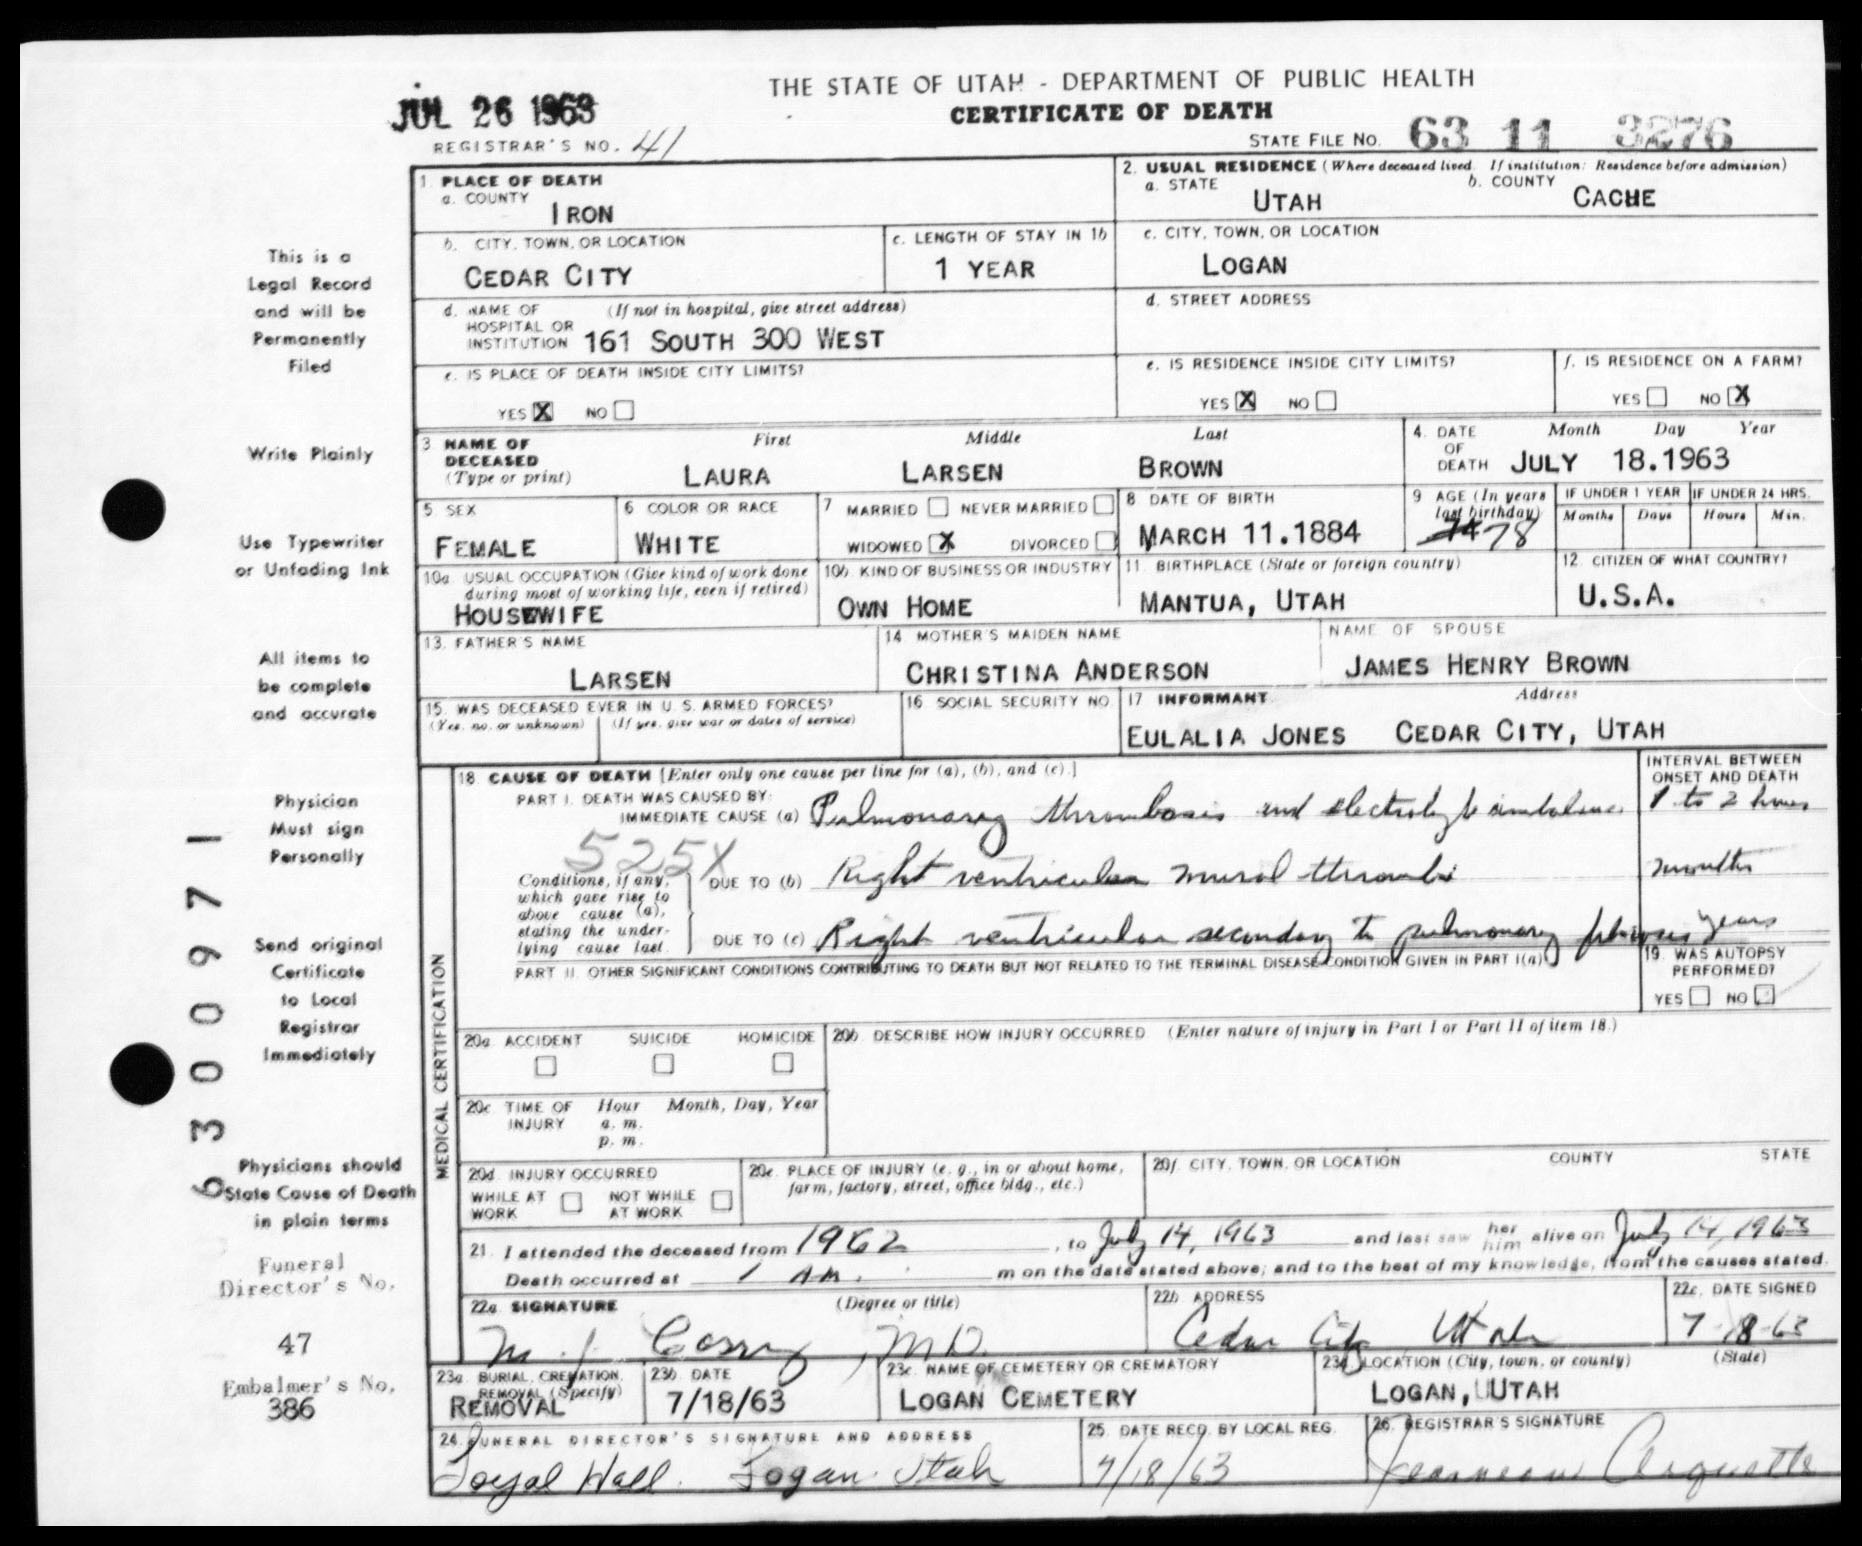 THE STATE OF UTAH - DEPARTMENT OF PUBLIC HEALTH
CERTIFICATE OF DEATH
JUL 26 1963
REGISTRAR'S NO. 41
STATE FILE NO. 63 11 3276
1. PLACE OF DEATH
a. COUNTY
IRON
2. USUAL RESIDENCE (Where deceased lived. If institution: Residence before admission)
a. STATE
UTAH
b. COUNTY
CACHE
b. CITY, TOWN, OR LOCATION
CEDAR CITY
c. LENGTH OF STAY IN 1b
1 YEAR
c. CITY, TOWN, OR LOCATION
LOGAN
d. NAME OF HOSPITAL OR INSTITUTION (If not in hospital, give street address)
161 SOUTH 300 WEST
d. STREET ADDRESS
e. IS PLACE OF DEATH INSIDE CITY LIMITS?
YES X NO
e. IS RESIDENCE INSIDE CITY LIMITS?
YES X NO
f. IS RESIDENCE ON A FARM?
YES NO X
3. NAME OF DECEASED (Type or print)
First Middle Last
LAURA LARSEN BROWN
4. DATE OF DEATH
Month Day Year
JULY 18.1963
5. SEX
FEMALE
6 COLOR OR RACE
WHITE
7 MARRIED NEVER MARRIED
WIDOWED X DIVORCED
8 DATE OF BIRTH
MARCH 11.1884
9 AGE (In years last birthday)
78
IF UNDER 1 YEAR
Months Days
IF UNDER 24 HRS.
Hours Min.
10a. USUAL OCCUPATION (Give kind of work done during most of working life, even if retired)
HOUSEWIFE
10b. KIND OF BUSINESS OR INDUSTRY
OWN HOME
11. BIRTHPLACE (State or foreign country)
MANTUA, UTAH
12. CITIZEN OF WHAT COUNTRY?
U.S.A.
13. FATHER'S NAME
LARSEN
14 MOTHER'S MAIDEN NAME
CHRISTINA ANDERSON
NAME OF SPOUSE
JAMES HENRY BROWN
15. WAS DECEASED EVER IN U.S. ARMED FORCES?
(Yes, no, or unknown) (If yes, give war or dates of service)
16. SOCIAL SECURITY NO.
17 INFORMANT Address
EULALIA JONES CEDAR CITY, UTAH
MEDICAL CERTIFICATION
18. CAUSE OF DEATH [Enter only one cause per line for (a), (b), and (c).]
INTERVAL BETWEEN ONSET AND DEATH
PART I. DEATH WAS CAUSED BY:
IMMEDIATE CAUSE (a) Pulmonary thrombosis and electrolyte imbalance
1 to 2 hours
525X
Conditions, if any, which gave rise to above cause (a), stating the underlying cause last.
DUE TO (b) Right ventricular mural thrombi
months
DUE TO (c) Right ventricular secondary to pulmonary fibrosis
years
PART II. OTHER SIGNIFICANT CONDITIONS CONTRIBUTING TO DEATH BUT NOT RELATED TO THE TERMINAL DISEASE CONDITION GIVEN IN PART I(a)
19. WAS AUTOPSY PERFORMED?
YES NO
20a. ACCIDENT SUICIDE HOMICIDE
20b. DESCRIBE HOW INJURY OCCURRED (Enter nature of injury in Part I or Part II of item 18.)
20c. TIME OF INJURY Hour Month, Day, Year
a. m.
p. m.
20d. INJURY OCCURRED
WHILE AT WORK NOT WHILE AT WORK
20e. PLACE OF INJURY (e. g., in or about home, farm, factory, street, office bldg., etc.)
20f. CITY, TOWN, OR LOCATION COUNTY STATE
21. I attended the deceased from 1962, to July 14, 1963 and last saw her him alive on July 14, 1963
Death occurred at 1 A.M. m on the date stated above; and to the best of my knowledge, from the causes stated.
22a. SIGNATURE (Degree or title)
M. J. , M.D.
22b ADDRESS
Cedar City Utah
22c. DATE SIGNED
7-18-63
23a. BURIAL, CREMATION, REMOVAL (Specify)
REMOVAL
23b. DATE
7/18/63
23c. NAME OF CEMETERY OR CREMATORY
LOGAN CEMETERY
23d. LOCATION (City, town, or county) (State)
LOGAN, UTAH
24. FUNERAL DIRECTOR'S SIGNATURE AND ADDRESS
Loyal Hall. Logan Utah
25. DATE RECD. BY LOCAL REG.
7/18/63
26. REGISTRAR'S SIGNATURE
This is a
Legal Record
and will be
Permanently
Filed
Write Plainly
Use Typewriter
or Unfading Ink
All items to
be complete
and accurate
Physician
Must sign
Personally
Send original
Certificate
to Local
Registrar
Immediately
Physicians should
State Cause of Death
in plain terms
Funeral
Director's No.
47
Embalmer's No.
386
6300971